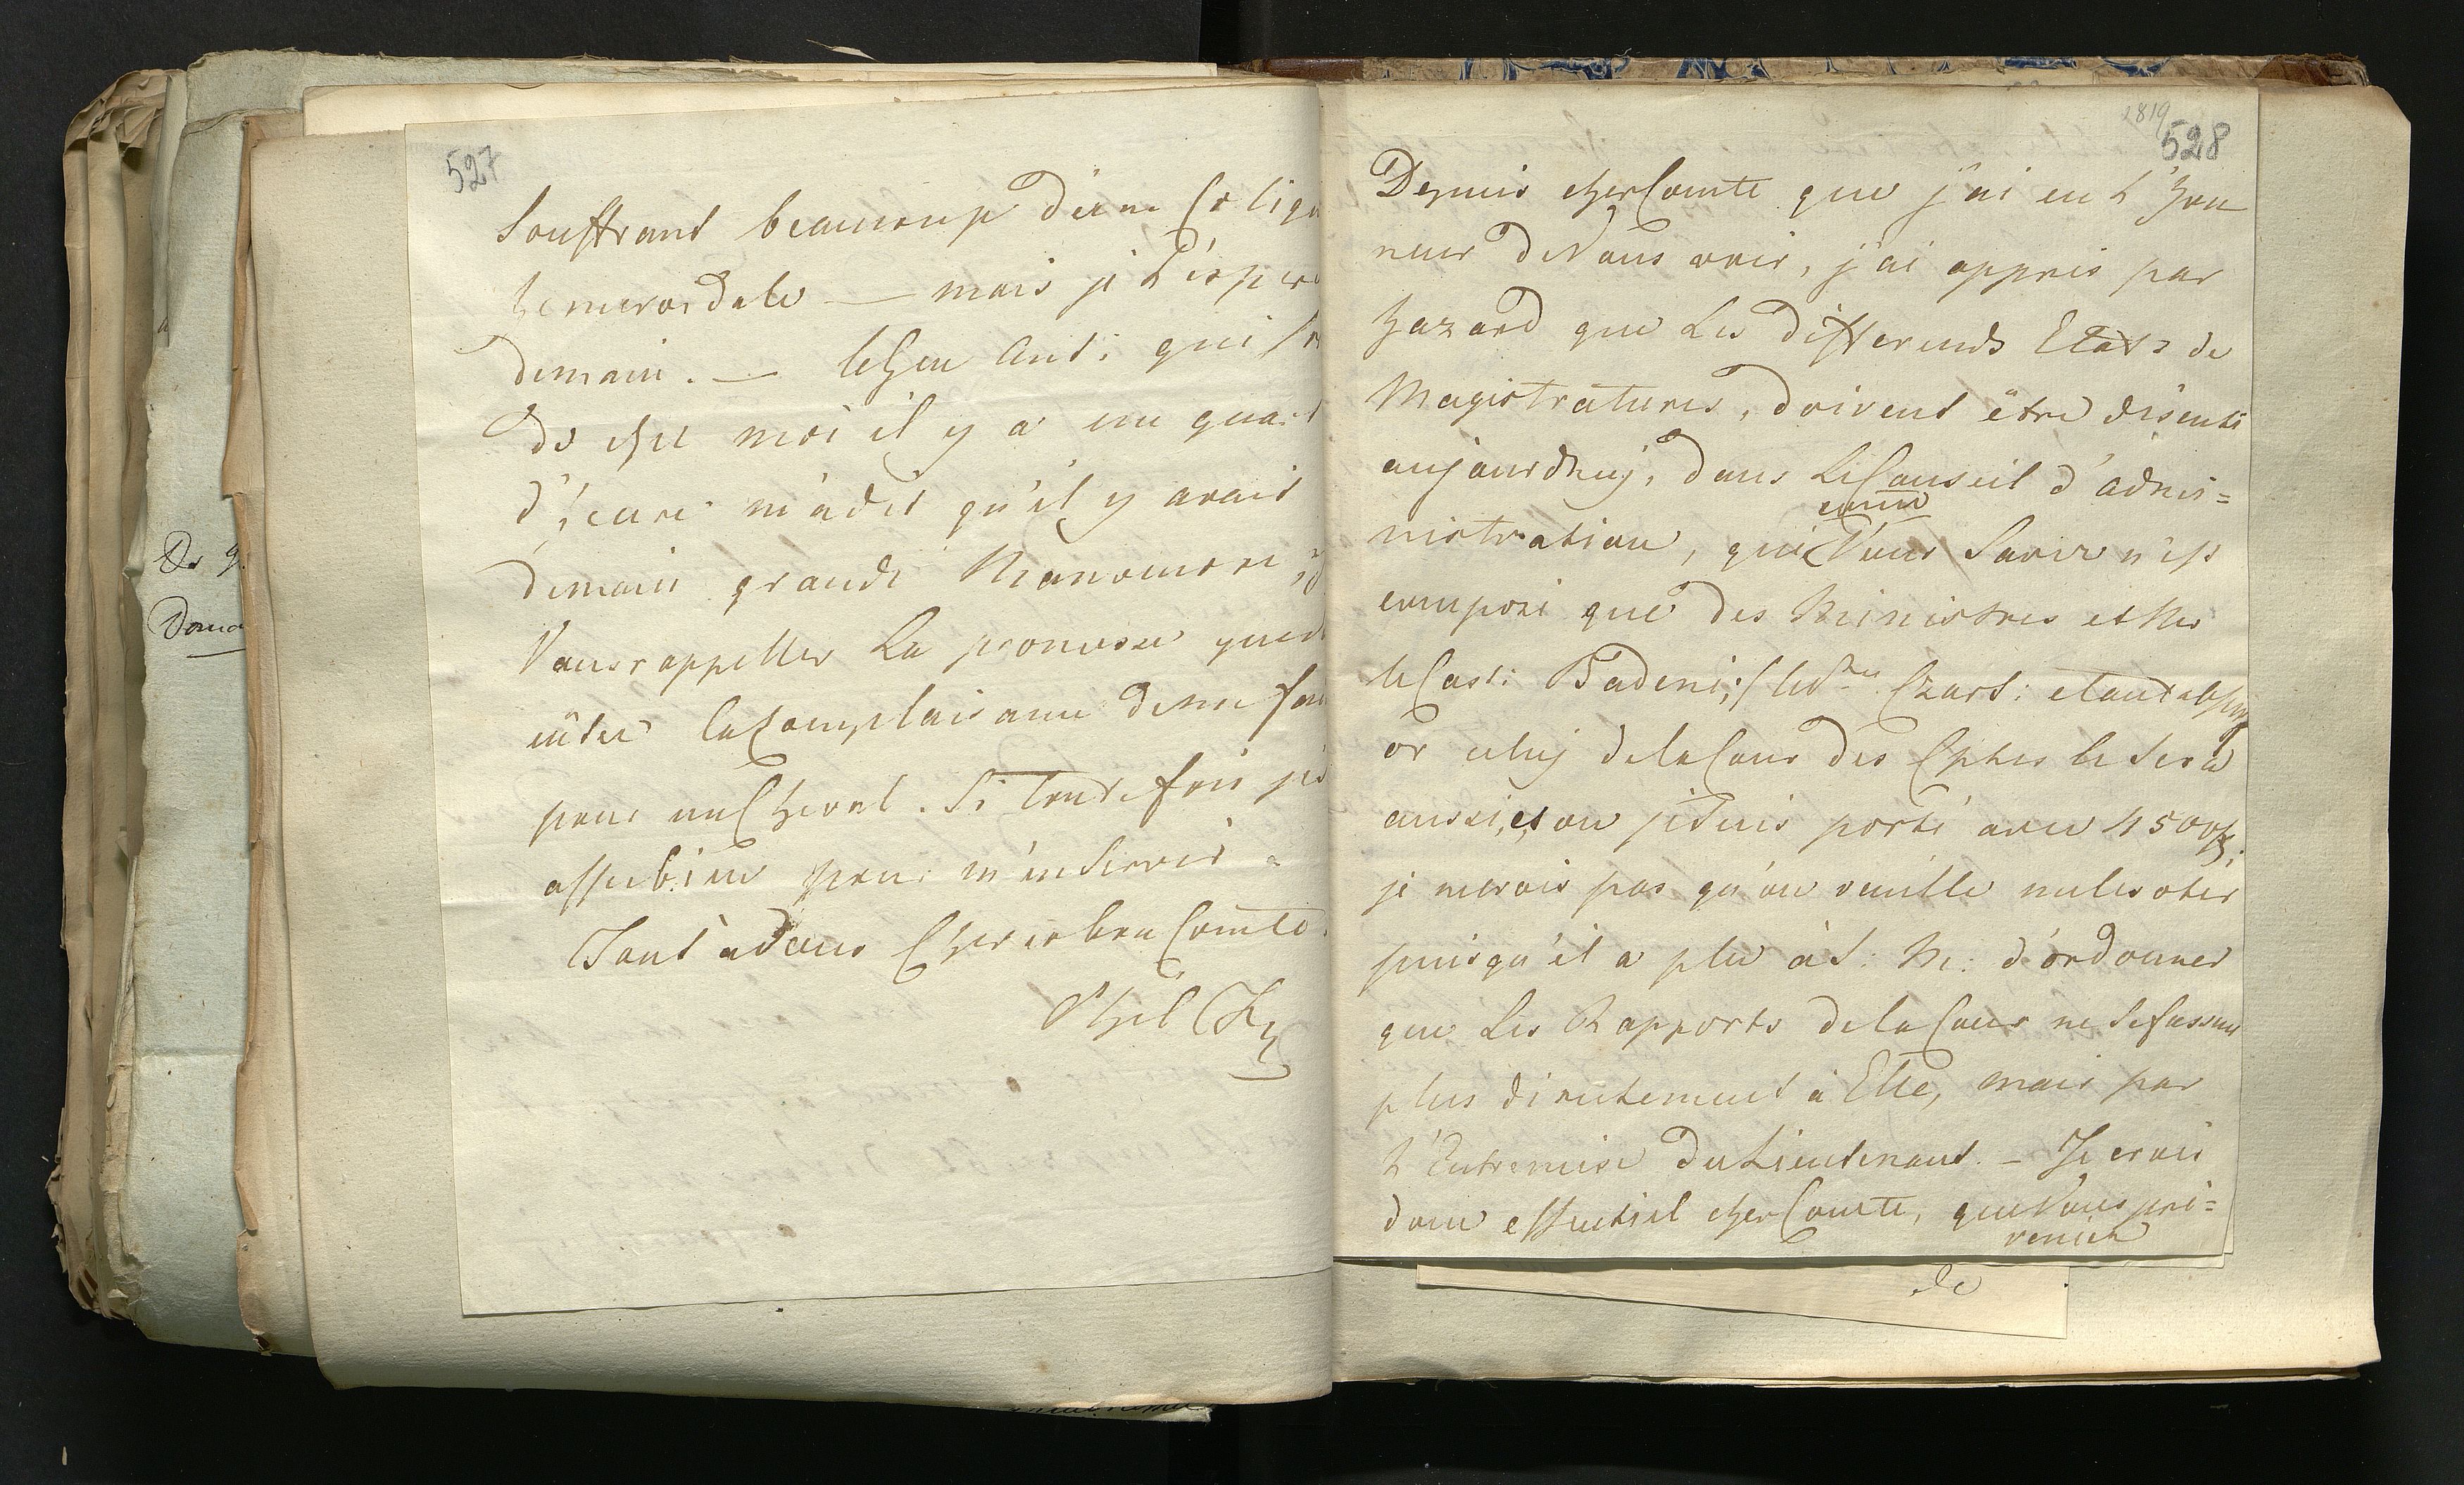 527
Souffrant beaucoup d'une Coliqu
hemeroidale — mais je L'esper
demain. — le Gen Ant: qui so
de chez moi il y a un quart
d'heure m'a dit qu'il y avait
demain grande Manoeuvre
Vous rappeller La promesse que
eutes la Complaisance de me fai
pour un Cheval. Si toutefois je
assez bien pour m'en servir.
Tout à Vous Cher et bon Comte.
2819
528
Depuis cher Comte que j'ai eu L'hon
neur de Vous voir, j'ai appris par
hazard que Les differends Etats de
Magistratures, doivent être discuté
aujourdhuj, dans Le Conseil d'admi=
comme
nistration, qui Vous Savez n'est
composé que des Ministres et Mr
le Cast: Badeni; Czart: etant absent
or celuj de la Cour des Cptes le Sera
aussi, et on je suis porté avec 4500
je ne crois pas qu'on veuille me les oter
puisqu'il a plu à S: M: d'ordonner
que Les Rapports de la Cour ne Se fassent
plus directement à Elle, mais par
L'Entremise du Lieutenant. — Je crois
donc essentiel cher Comte, que Vous pré=
veniez
de
De g
Dona